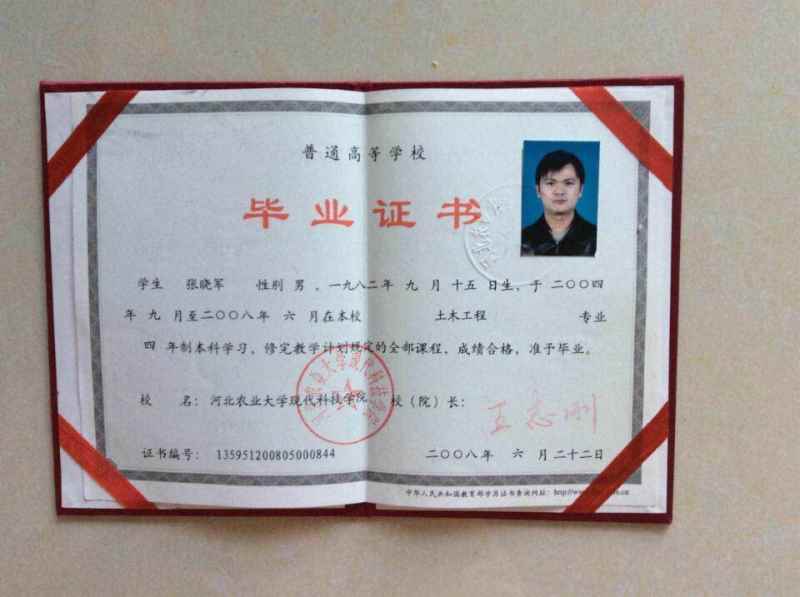 普通高等学校
毕业证书
学生 张晓军 性别 男 ，一九八二年 九 月 十五 日生，于 二〇〇四
年 九 月至二〇〇八年 六 月在本校 土木工程 专业
四 年制本科学习，修完教学计划规定的全部课程，成绩合格，准予毕业。
校 名：河北农业大学现代科技学院 校（院）长：
证书编号： 135951200805000844 二〇〇八年 六 月二十二日
中华人民共和国教育部学历证书查询网址：http://www.